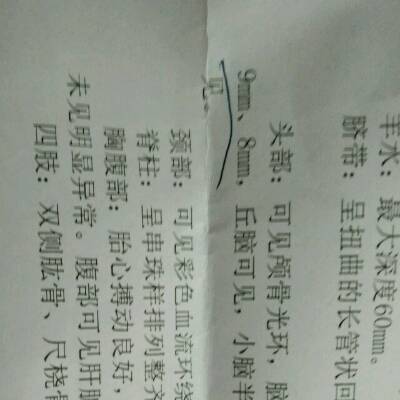 羊水：最大深度60mm。
脐带：呈扭曲的长管状回
头部：可见颅骨光环，脑
9mm、8mm，丘脑可见，小脑半
见。
颈部：可见彩色血流环绕
脊柱：呈串珠样排列整齐
胸腹部：胎心搏动良好，
未见明显异常。腹部可见肝脏
四肢：双侧肱骨、尺桡骨